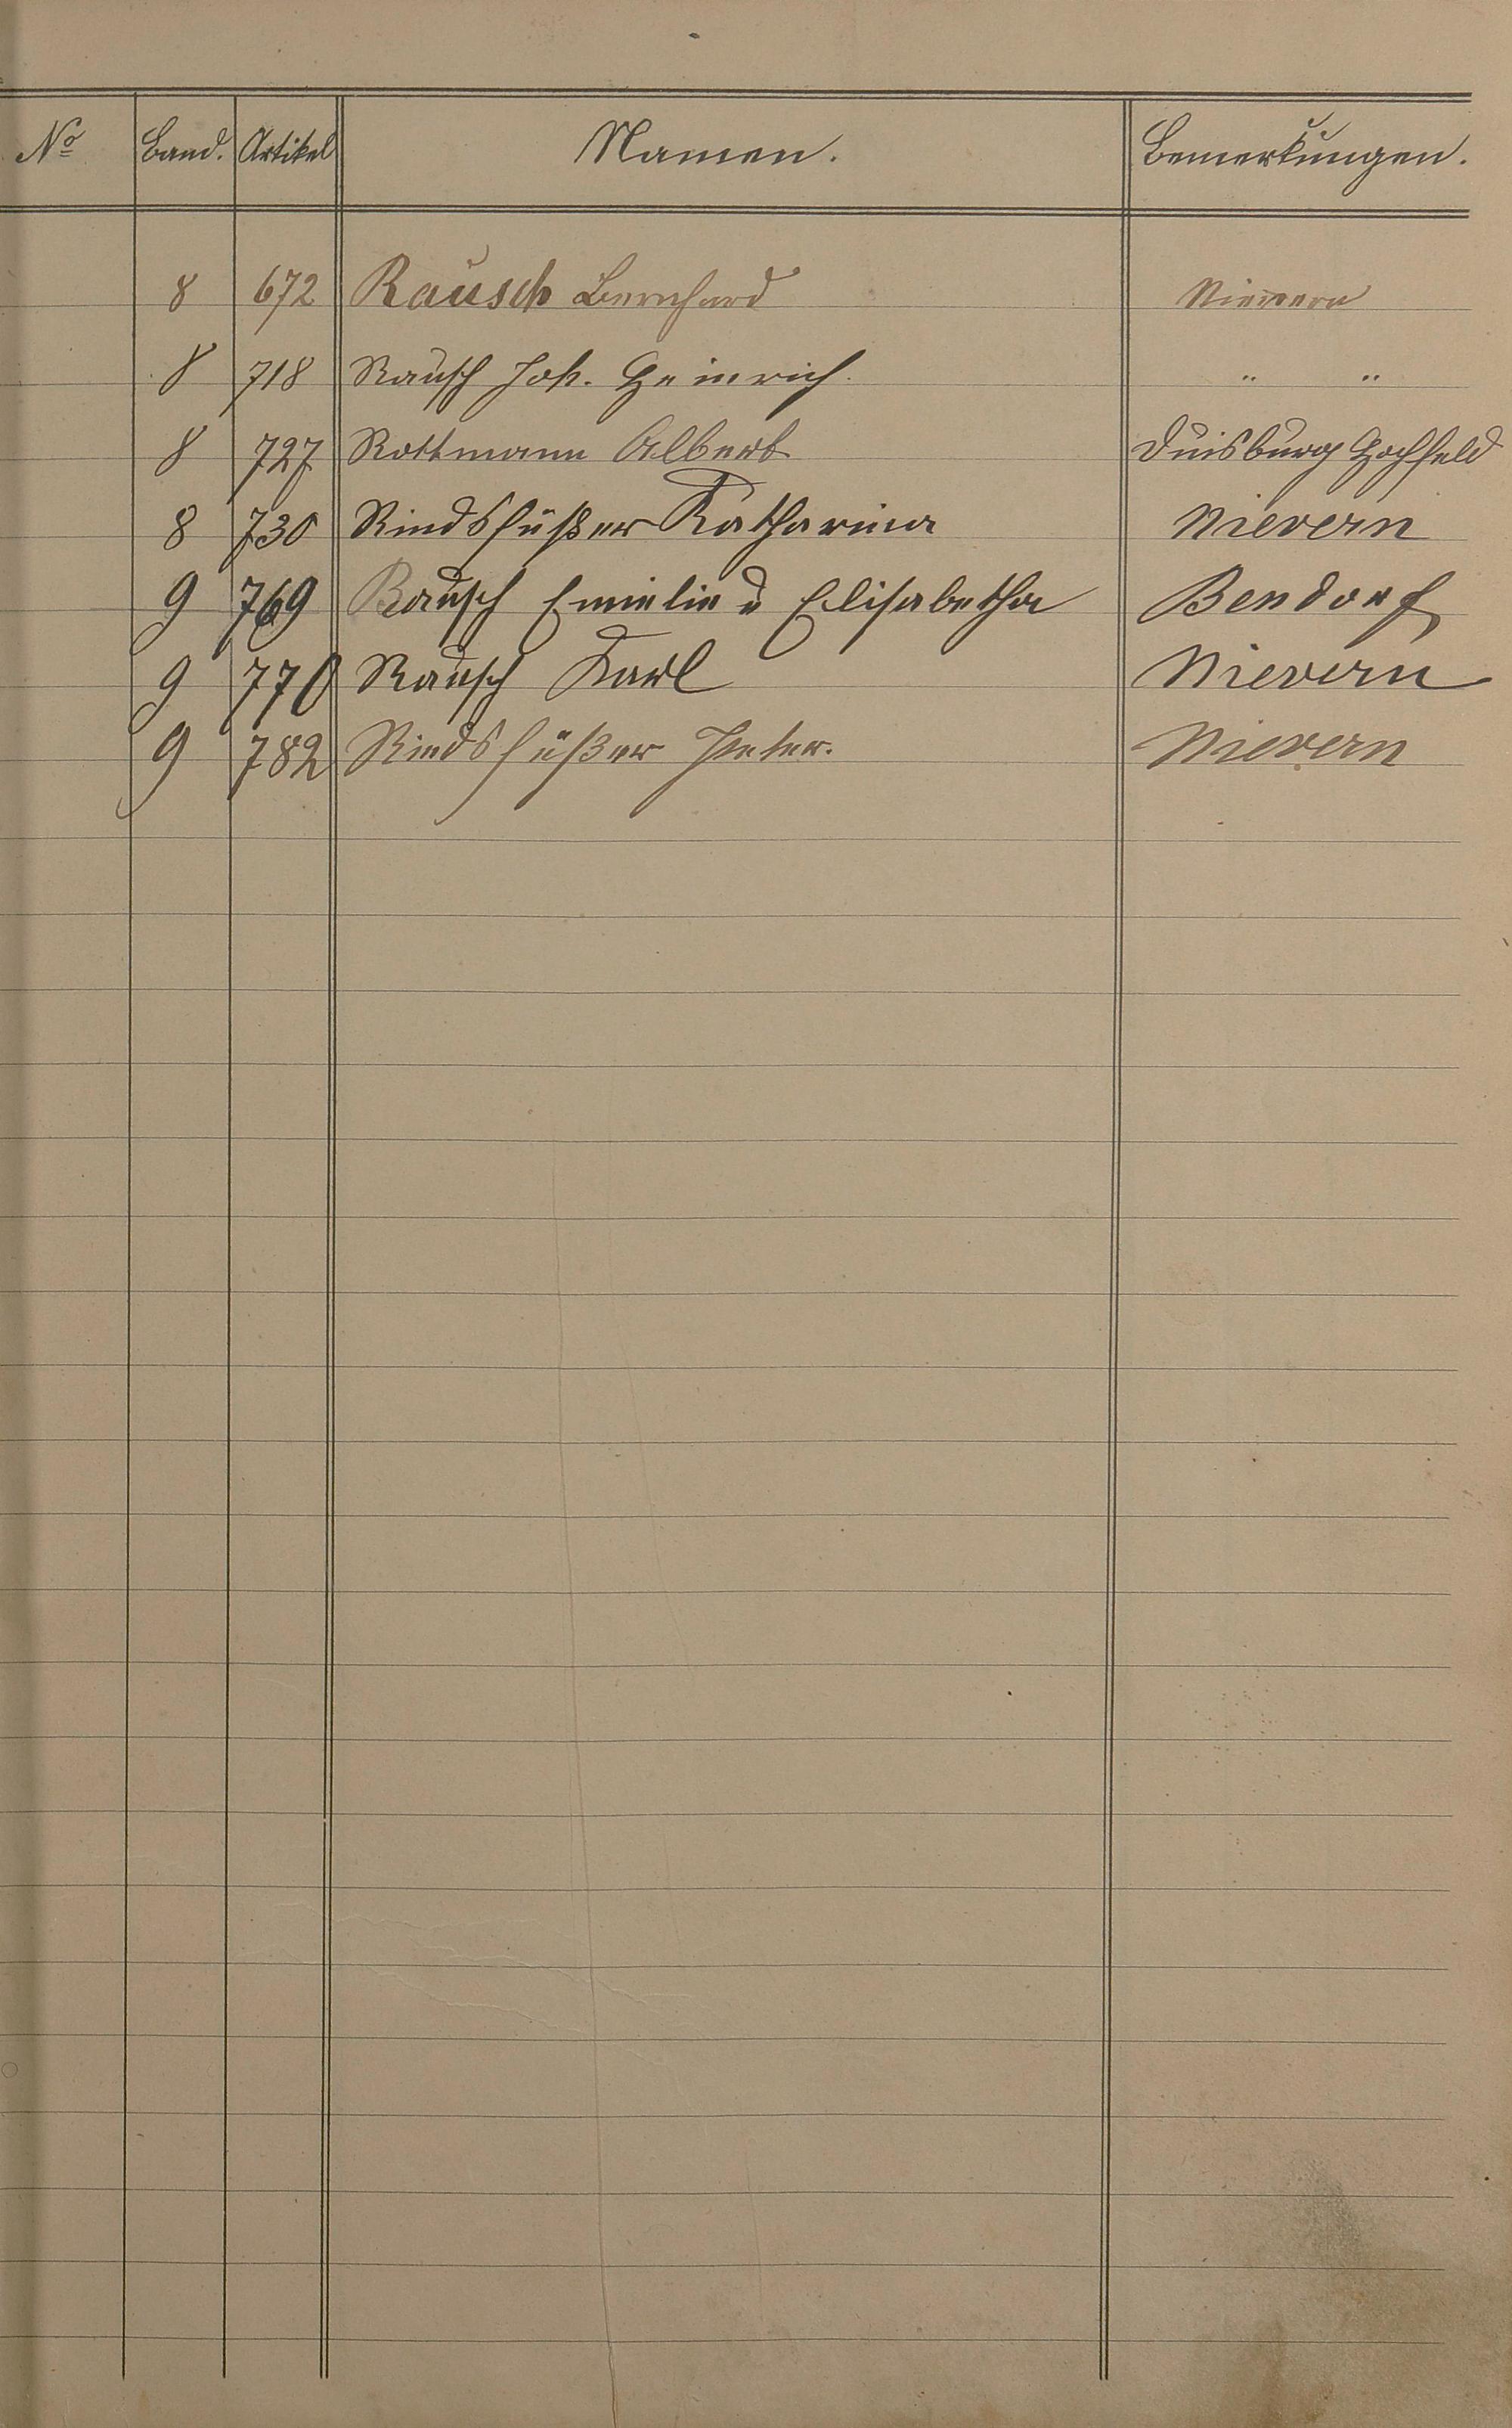 No Band. Artikel Namen. Bemerkungen.
8 672 Rausch Bernhard Nievern
8 718 Rausch Joh. Heinrich. " "
8 727 Rottmann Albert Duisburg Hochfeld
8 730 Rindsfüßer Katharina Nievern
9 769 Rausch Emielie u Elisabetha Bendorf
9 770 Rausch Karl Nievern
9 782 Rindsfüßer Peter. Nievern